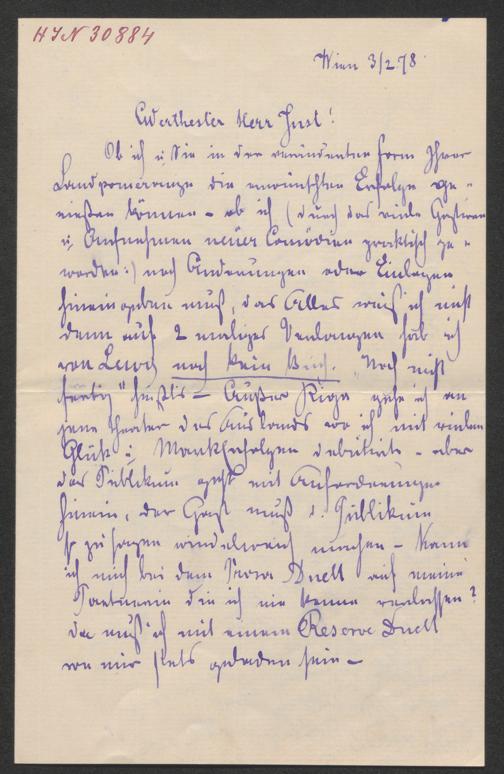 HJN 30884
Wien 3/2 78
Werthester Herr Just!
Ob ich u Sie in der veränderten Form Ihrer
Landpomeranze die erwünschten Erfolge ge-
nießen können – ob ich (durch das viele Gastiren
u. Aufnehmen neuer Comödien praktisch ge-
worden:) noch Änderungen oder Einlagen
hineingeben muß, das Alles weiß ich nicht
denn auf 2 maliges Verlangen hab ich
von Lewy noch kein Buch. "Noch nicht
fertig" heißts – Außer Riga gehe ich an
jene Theater des Auslands wo ich mit vielem
Glük u. debutirte – aber
das Publikum geht mit Anforderungen
hinein, der Gast muß s. Publikum
so zu sagen windelweich machen – Kann
ich mich bei dem Duett auf meine
Partnerin die ich nie kenne verlassen?
da muß ich mit einem Reserve Duett
wo mir stets geladen sein –